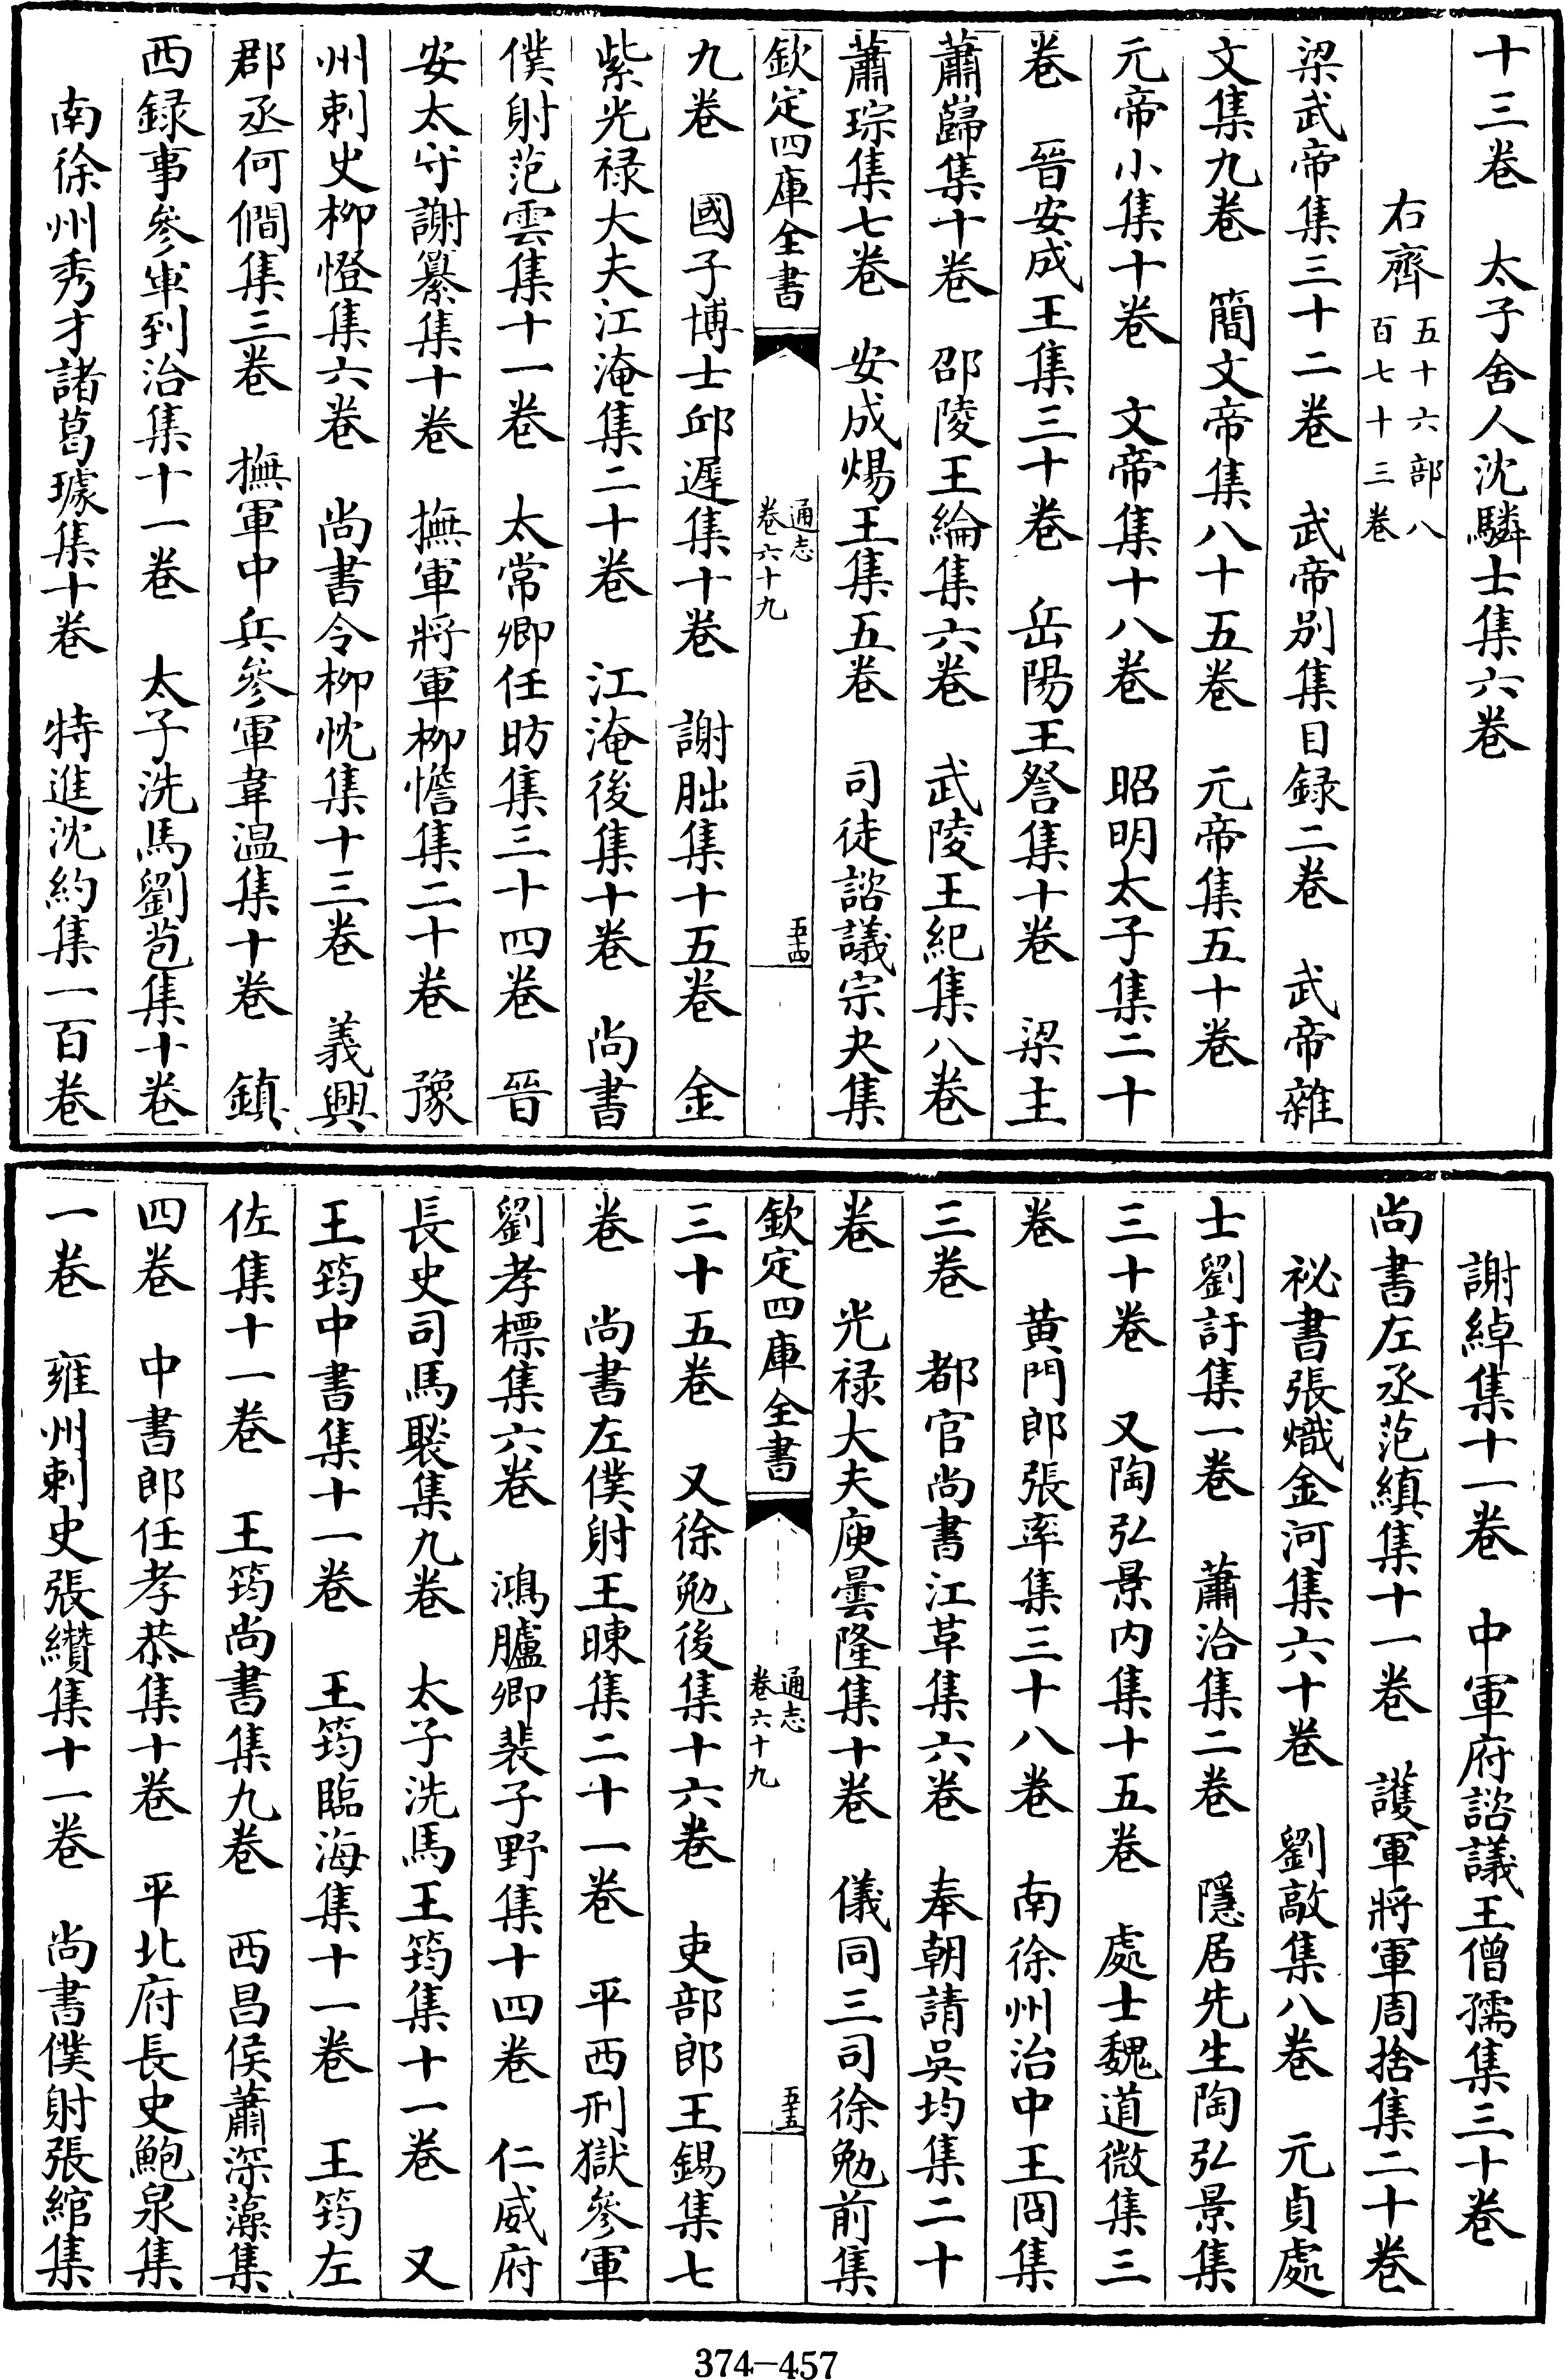 十三卷　太子舍人沈驎士集六卷
右齊五十六部八百七十三卷
梁武帝集三十二卷　武帝别集目録二卷　武帝雜
文集九卷　簡文帝集八十五卷　元帝集五十卷
元帝小集十卷　文帝集十八卷　昭明太子集二十
卷　晉安成王集三十卷　岳陽王詧集十卷　梁主
蕭巋集十卷　邵陵王綸集六卷　武陵王紀集八卷
蕭琮集七卷　安成煬王集五卷　司徒諮議宗夬集
欽定四庫全書　通志卷六十九　五十四
九卷　國子博士邱遲集十卷　謝朏集十五卷　金
紫光禄大夫江淹集二十卷　江淹後集十卷　尚書
僕射范雲集十一卷　太常卿任昉集三十四卷　晉
安太守謝纂集十卷　撫軍將軍柳憺集二十卷　豫
州刺史柳憕集六卷　尚書令柳忱集十三卷　義興
郡丞何僩集三卷　撫軍中兵參軍韋温集十卷　鎮
西録事參軍到洽集十一卷　太子洗馬劉苞集十卷
南徐州秀才諸葛璩集十卷　特進沈約集一百卷
謝綽集十一卷　中軍府諮議王僧孺集三十卷
尚書左丞范縝集十一卷　護軍將軍周捨集二十卷
祕書張熾金河集六十卷　劉敲集八卷　元貞處
士劉訏集一卷　蕭洽集二卷　隱居先生陶弘景集
三十卷　又陶弘景内集十五卷　處士魏道微集三
卷　黄門郎張率集三十八卷　南徐州治中王冏集
三卷　都官尚書江革集六卷　奉朝請吳均集二十
卷　光禄大夫庾曇隆集十卷　儀同三司徐勉前集
欽定四庫全書　通志卷六十九　五十五
三十五卷　又徐勉後集十六卷　吏部郎王錫集七
卷　尚書左僕射王暕集二十一卷　平西刑獄參軍
劉孝標集六卷　鴻臚卿裴子野集十四卷　仁威府
長史司馬褧集九卷　太子洗馬王筠集十一卷　又
王筠中書集十一卷　王筠臨海集十一卷　王筠左
佐集十一卷　王筠尚書集九卷　西昌侯蕭深藻集
四卷　中書郎任孝恭集十卷　平北府長史鮑泉集
一卷　雍州刺史張纘集十一卷　尚書僕射張綰集
374-457